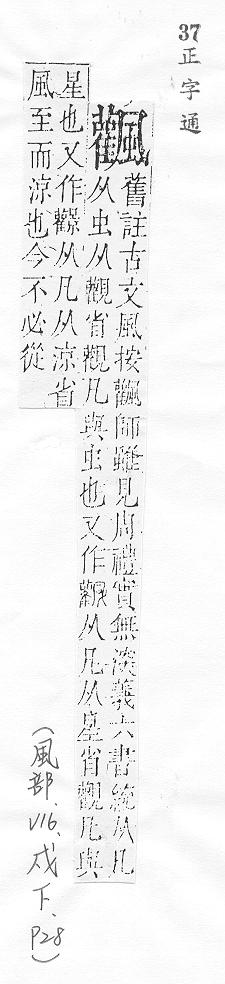 37正字通
飌
舊註古文風按飌師雖見周禮實無深義六書統从凡
从虫从觀省觀凡與虫也又作从凡从星省觀凡與
星也又作从凡从涼省
風至而涼也今不必從
(風部.V16.戌下.P28)